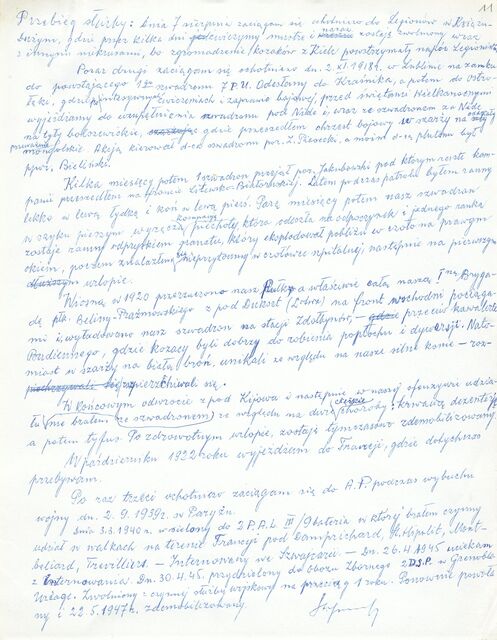 11
Przebieg służby: Dnia 7 sierpnia zaciągam się ochotniczo do Legionów w Książu
gdzie przez kilka dni ćwiczymy musztrę i zostaję zwolniony wraz
z innymi mikrusami, bo zgromadzenie kozaków z Kielc powstrzymały napór Legionistów
Poraz drugi zaciągam się ochotniczo dn. 2.XI.1918r. w Lublinie na zamku
do powstającego 1go szwadronu 7 P.U. Odesłany do Kraśnika, a potem do Ostro-
łęki, gdzie po intensywnych ćwiczeniach i zaprawie bojowej, przed świętami Wielkanocnymi
wyjeżdżamy do uzupełnienia szwadronu pod Nidę i wraz ze szwadronem z Nidy
na tyły bolszewickie, gdzie przeszedłem chrzest bojowy w szarży na
mongolskie. Akcją kierował d-ca szwadronu por. Z. Piasecki, a moim d-cą plutonu był
ppor. Bieliński.
Kilka miesięcy potem 1 szwadron przejął por. Jakubowski pod którym resztę kam-
panii przeszedłem na froncie Litewsko-Białoruskiej. Latem podczas patrolu byłem ranny
lekko w lewą łydkę i koń w lewą pierś. Parę miesięcy potem nasz szwadron
w szyku pieszym wyręcza kompanię piechoty, która odeszła na odpoczynek i jednego ranka
zostaję ranny odpryskiem granatu, który eksplodował pobliżu w błoto na prawym
okiem, poczem znalazłem się nieprzytomny w czołówce szpitalnej, następnie na pierwszym
dłuższym urlopie.
Wiosną w 1920 przerzucono nasz pułk, a właściwie całą naszą 1szą Bryga-
dę płk. Beliny-Prażmowskiego z pod Dukszt (Łotwa) na front wschodni pociąga-
mi i wyładowano nasz szwadron na stacji Zdołbynów, przeciw kawalerii
Budiennego, gdzie kozacy byli dobrzy do robienia popłochu i dywersji. Nato-
miast w szarży na białą broń, unikali ze względu na nasze silne konie – roz-
pierzchiwali się.
W końcowym odwrocie z pod Kijowa i następnie w naszej ofensywie udzia-
łu (nie brałem ze szwadronem) ze względu na dwie cięższe choroby: krwawą dezenterję
a potem tyfus. Po zdrowotnym urlopie, zostaję tymczasowo zdemobilizowany.
W październiku 1922 roku wyjeżdżam do Francji, gdzie dotychczas
przebywam.
Po raz trzeci ochotniczo zaciągam się do A.P. podczas wybuchu
wojny dn. 2.9.1939r. w Paryżu.
Dnia 3.3.1940 r. wcielony do 2 P.A.L. III/9 bateria w której brałem czynny
udział w walkach na terenie Francji pod Damprichard, St. Hipolit, Mont-
beliard, Trevillers. – Internowany we Szwajcarii – Dn. 26.4.1945 uciekam
z internowania. Dn. 30.4.45. przydzielony do obozu Zbornego 2 D.S.P. w Grenoble
Uriage. Zwolniony z czynnej służby wojskowej na przeciąg 1 roku. Ponownie powoła-
ny i 22.5.1947r. zdemobilizowany.